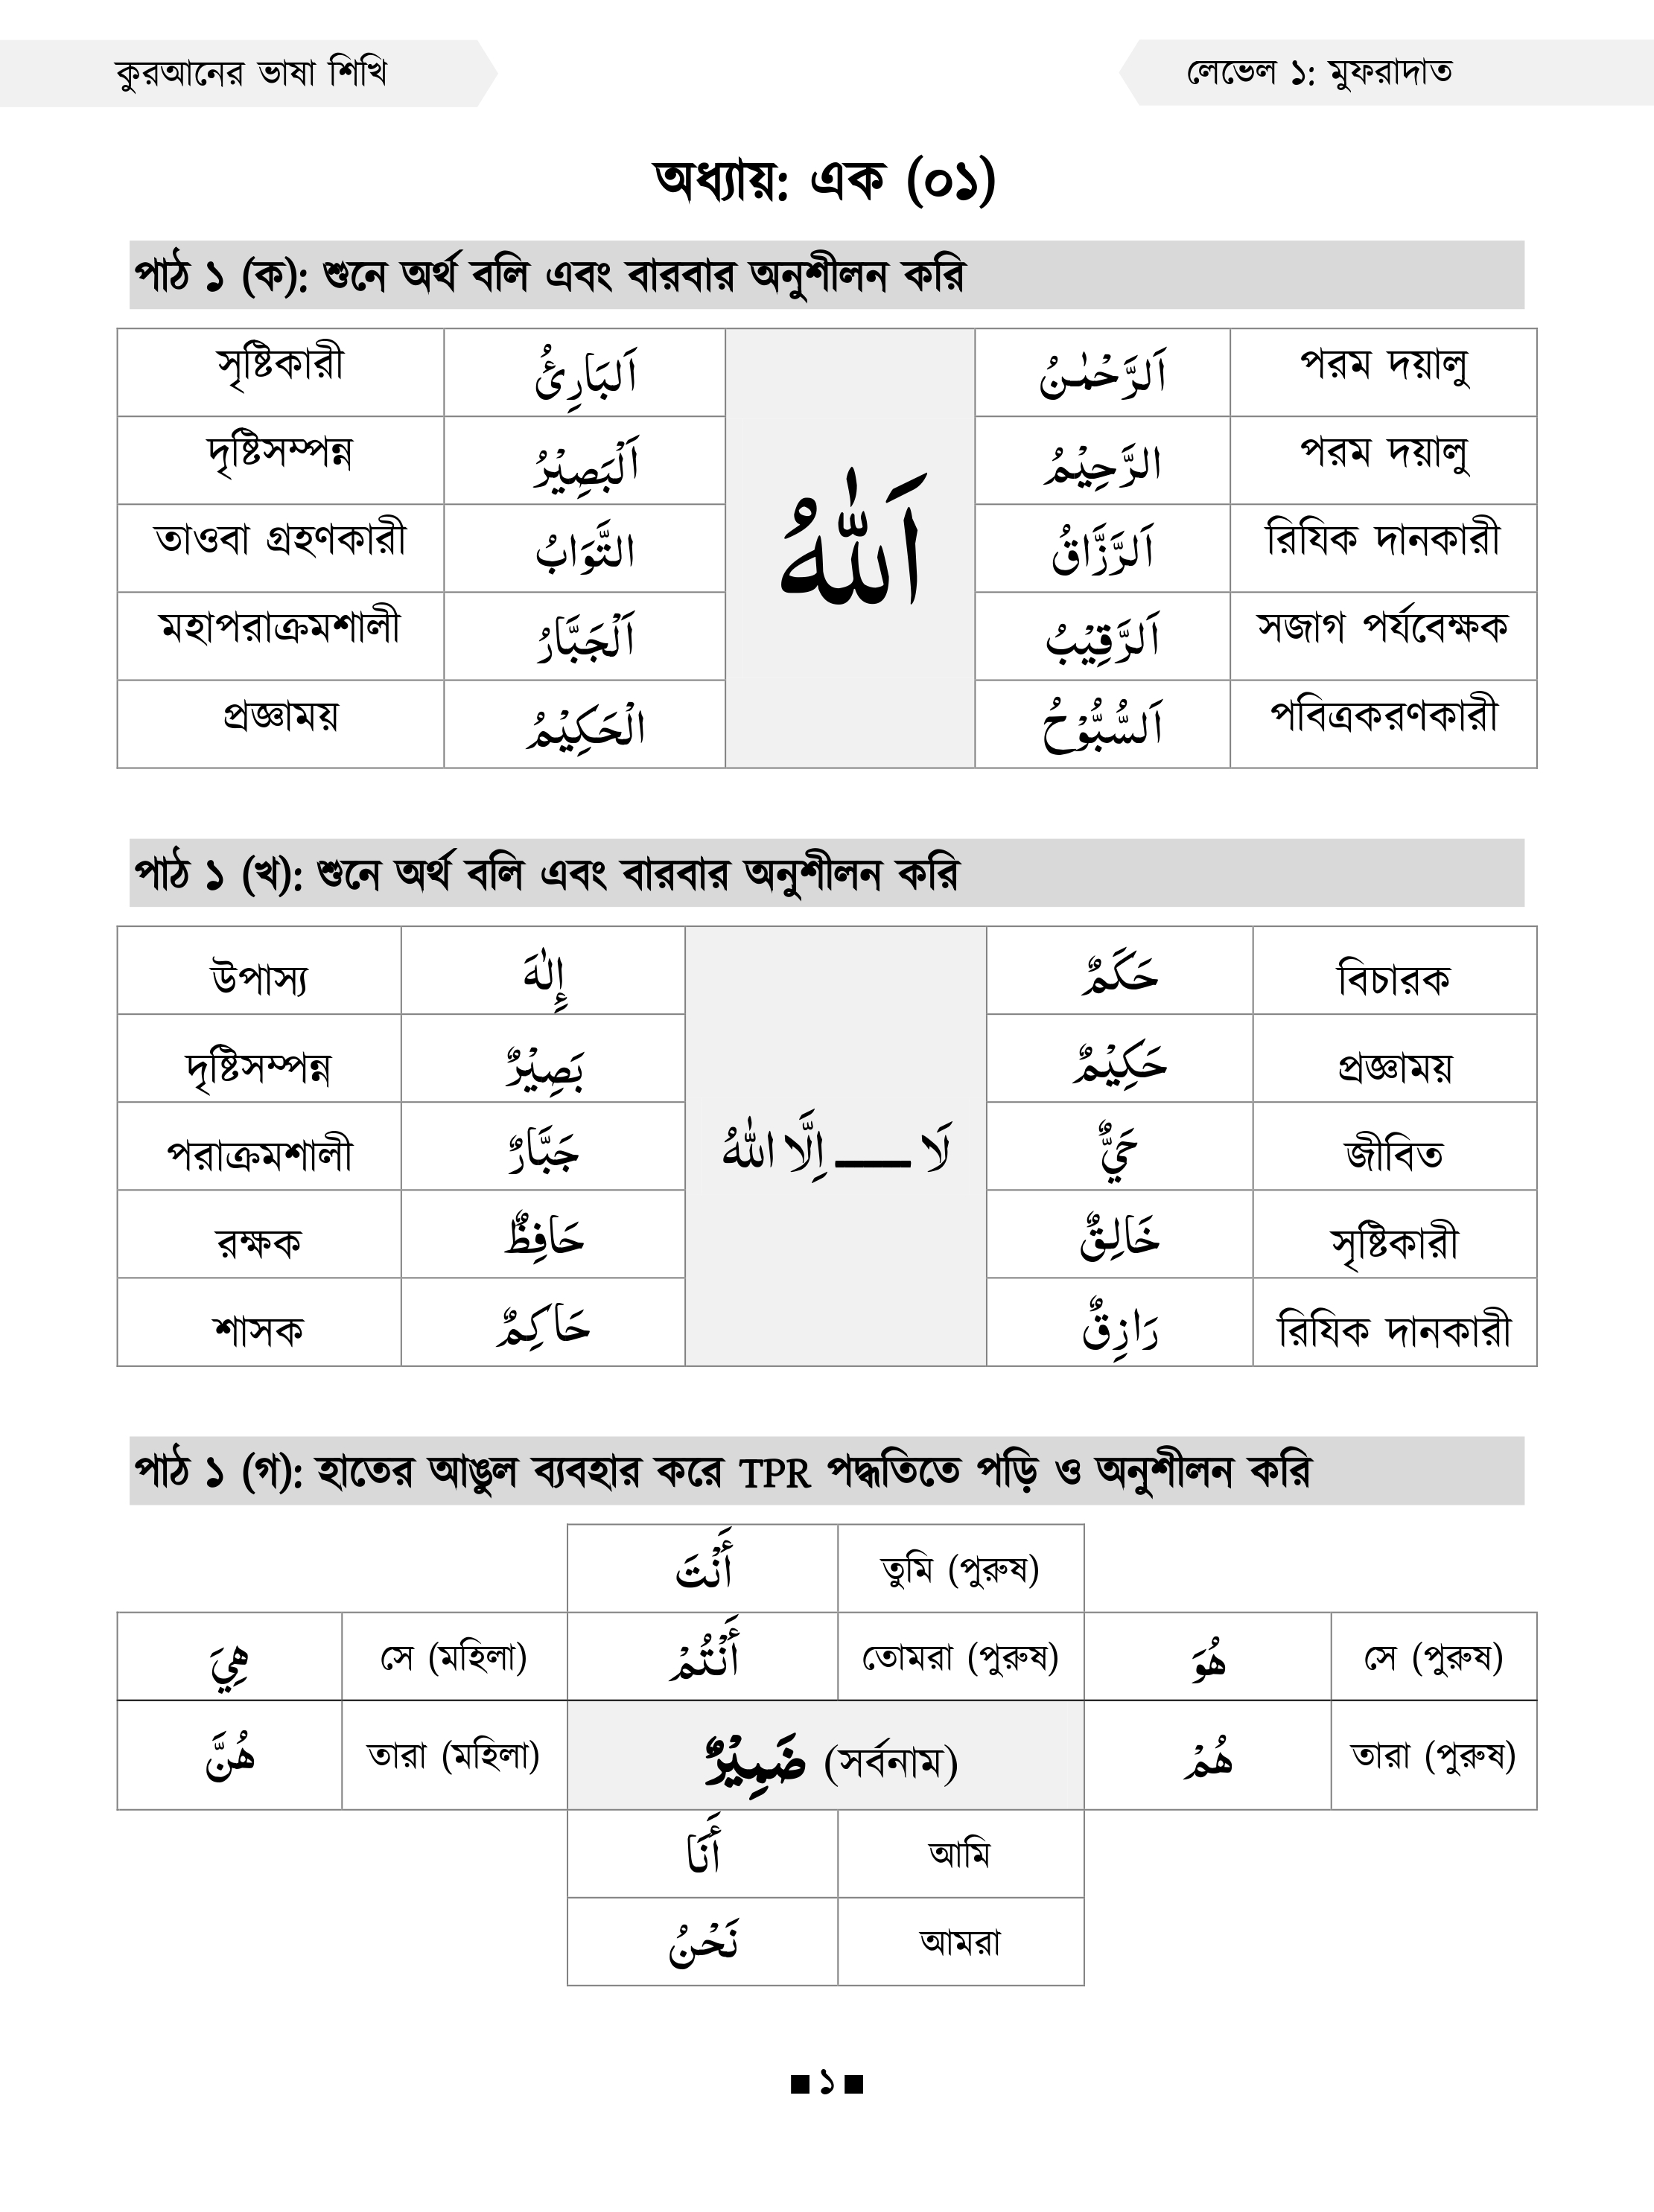 কুরআনের ভাষা শিখি লেভেল ১: মুফরাদাত
অধ্যায়: এক (০১)
পাঠ ১ (ক): শুনে অর্থ বলি এবং বারবার অনুশীলন করি
সৃষ্টিকারী اَلبَارِئُ اَلرَّحْمٰنُ পরম দয়ালু
দৃষ্টিসম্পন্ন اَلْبَصِيْرُ الرَّحِيْمُ পরম দয়ালু
তাওবা গ্রহণকারী التَّوَابُ اَللّٰهُ اَلرَّزَّاقُ রিযিক দানকারী
মহাপরাক্রমশালী اَلْجَبَّارُ اَلرَّقِيْبُ সজাগ পর্যবেক্ষক
প্রজ্ঞাময় الْحَكِيْمُ اَلسُّبُّوْحُ পবিত্রকরণকারী
পাঠ ১ (খ): শুনে অর্থ বলি এবং বারবার অনুশীলন করি
উপাস্য إِلٰهَ حَكَمٌ বিচারক
দৃষ্টিসম্পন্ন بَصِيْرٌ حَكِيْمٌ প্রজ্ঞাময়
পরাক্রমশালী جَبَّارٌ لَا ـــــ اِلَّا اللّٰهُ حَيٌّ জীবিত
রক্ষক حَافِظٌ خَالِقٌ সৃষ্টিকারী
শাসক حَاكِمٌ رَازِقٌ রিযিক দানকারী
পাঠ ১ (গ): হাতের আঙুল ব্যবহার করে TPR পদ্ধতিতে পড়ি ও অনুশীলন করি
أَنْتَ তুমি (পুরুষ)
هِيَ সে (মহিলা) أَنْتُمْ তোমরা (পুরুষ) هُوَ সে (পুরুষ)
هُنَّ তারা (মহিলা) ضَمِيْرٌ (সর্বনাম) هُمْ তারা (পুরুষ)
أَنَا আমি
نَحْنُ আমরা
■ ১ ■